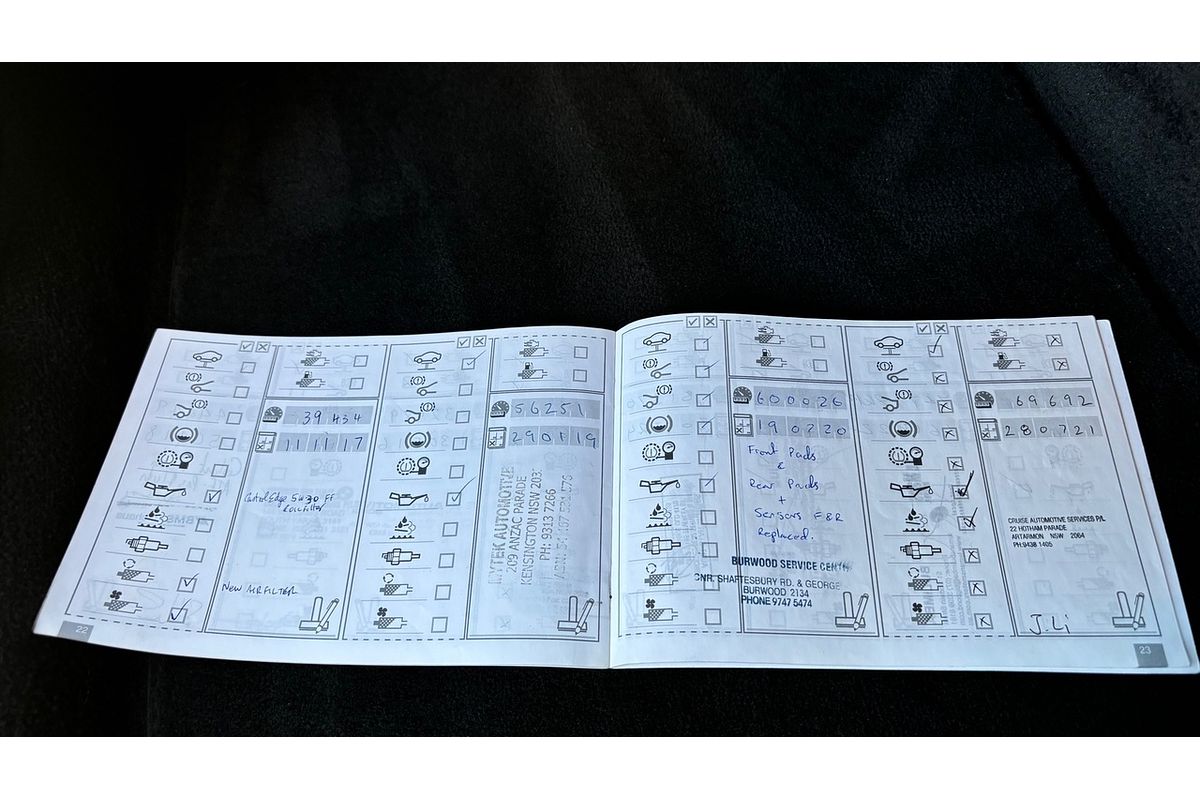 39434
111117
Castrol Edge 5W30 FF
NEW AIR FILTER
22
56251
290119
209 ANZAC PARADE
KENSINGTON NSW 203
PH: 9313 7266
600026
190220
Front Pads
&
Rear Pads
+
Sensors F&R
Replaced.
BURWOOD SERVICE
CNR. SHAFTESBURY RD. & GEORGE
BURWOOD 2134
PHONE 9747 5474
69692
280721
CRUISE AUTOMOTIVE SERVICES P/L
22 HOTHAM PARADE
ARTARMON NSW 2064
PH:9438 1405
J.Li
23